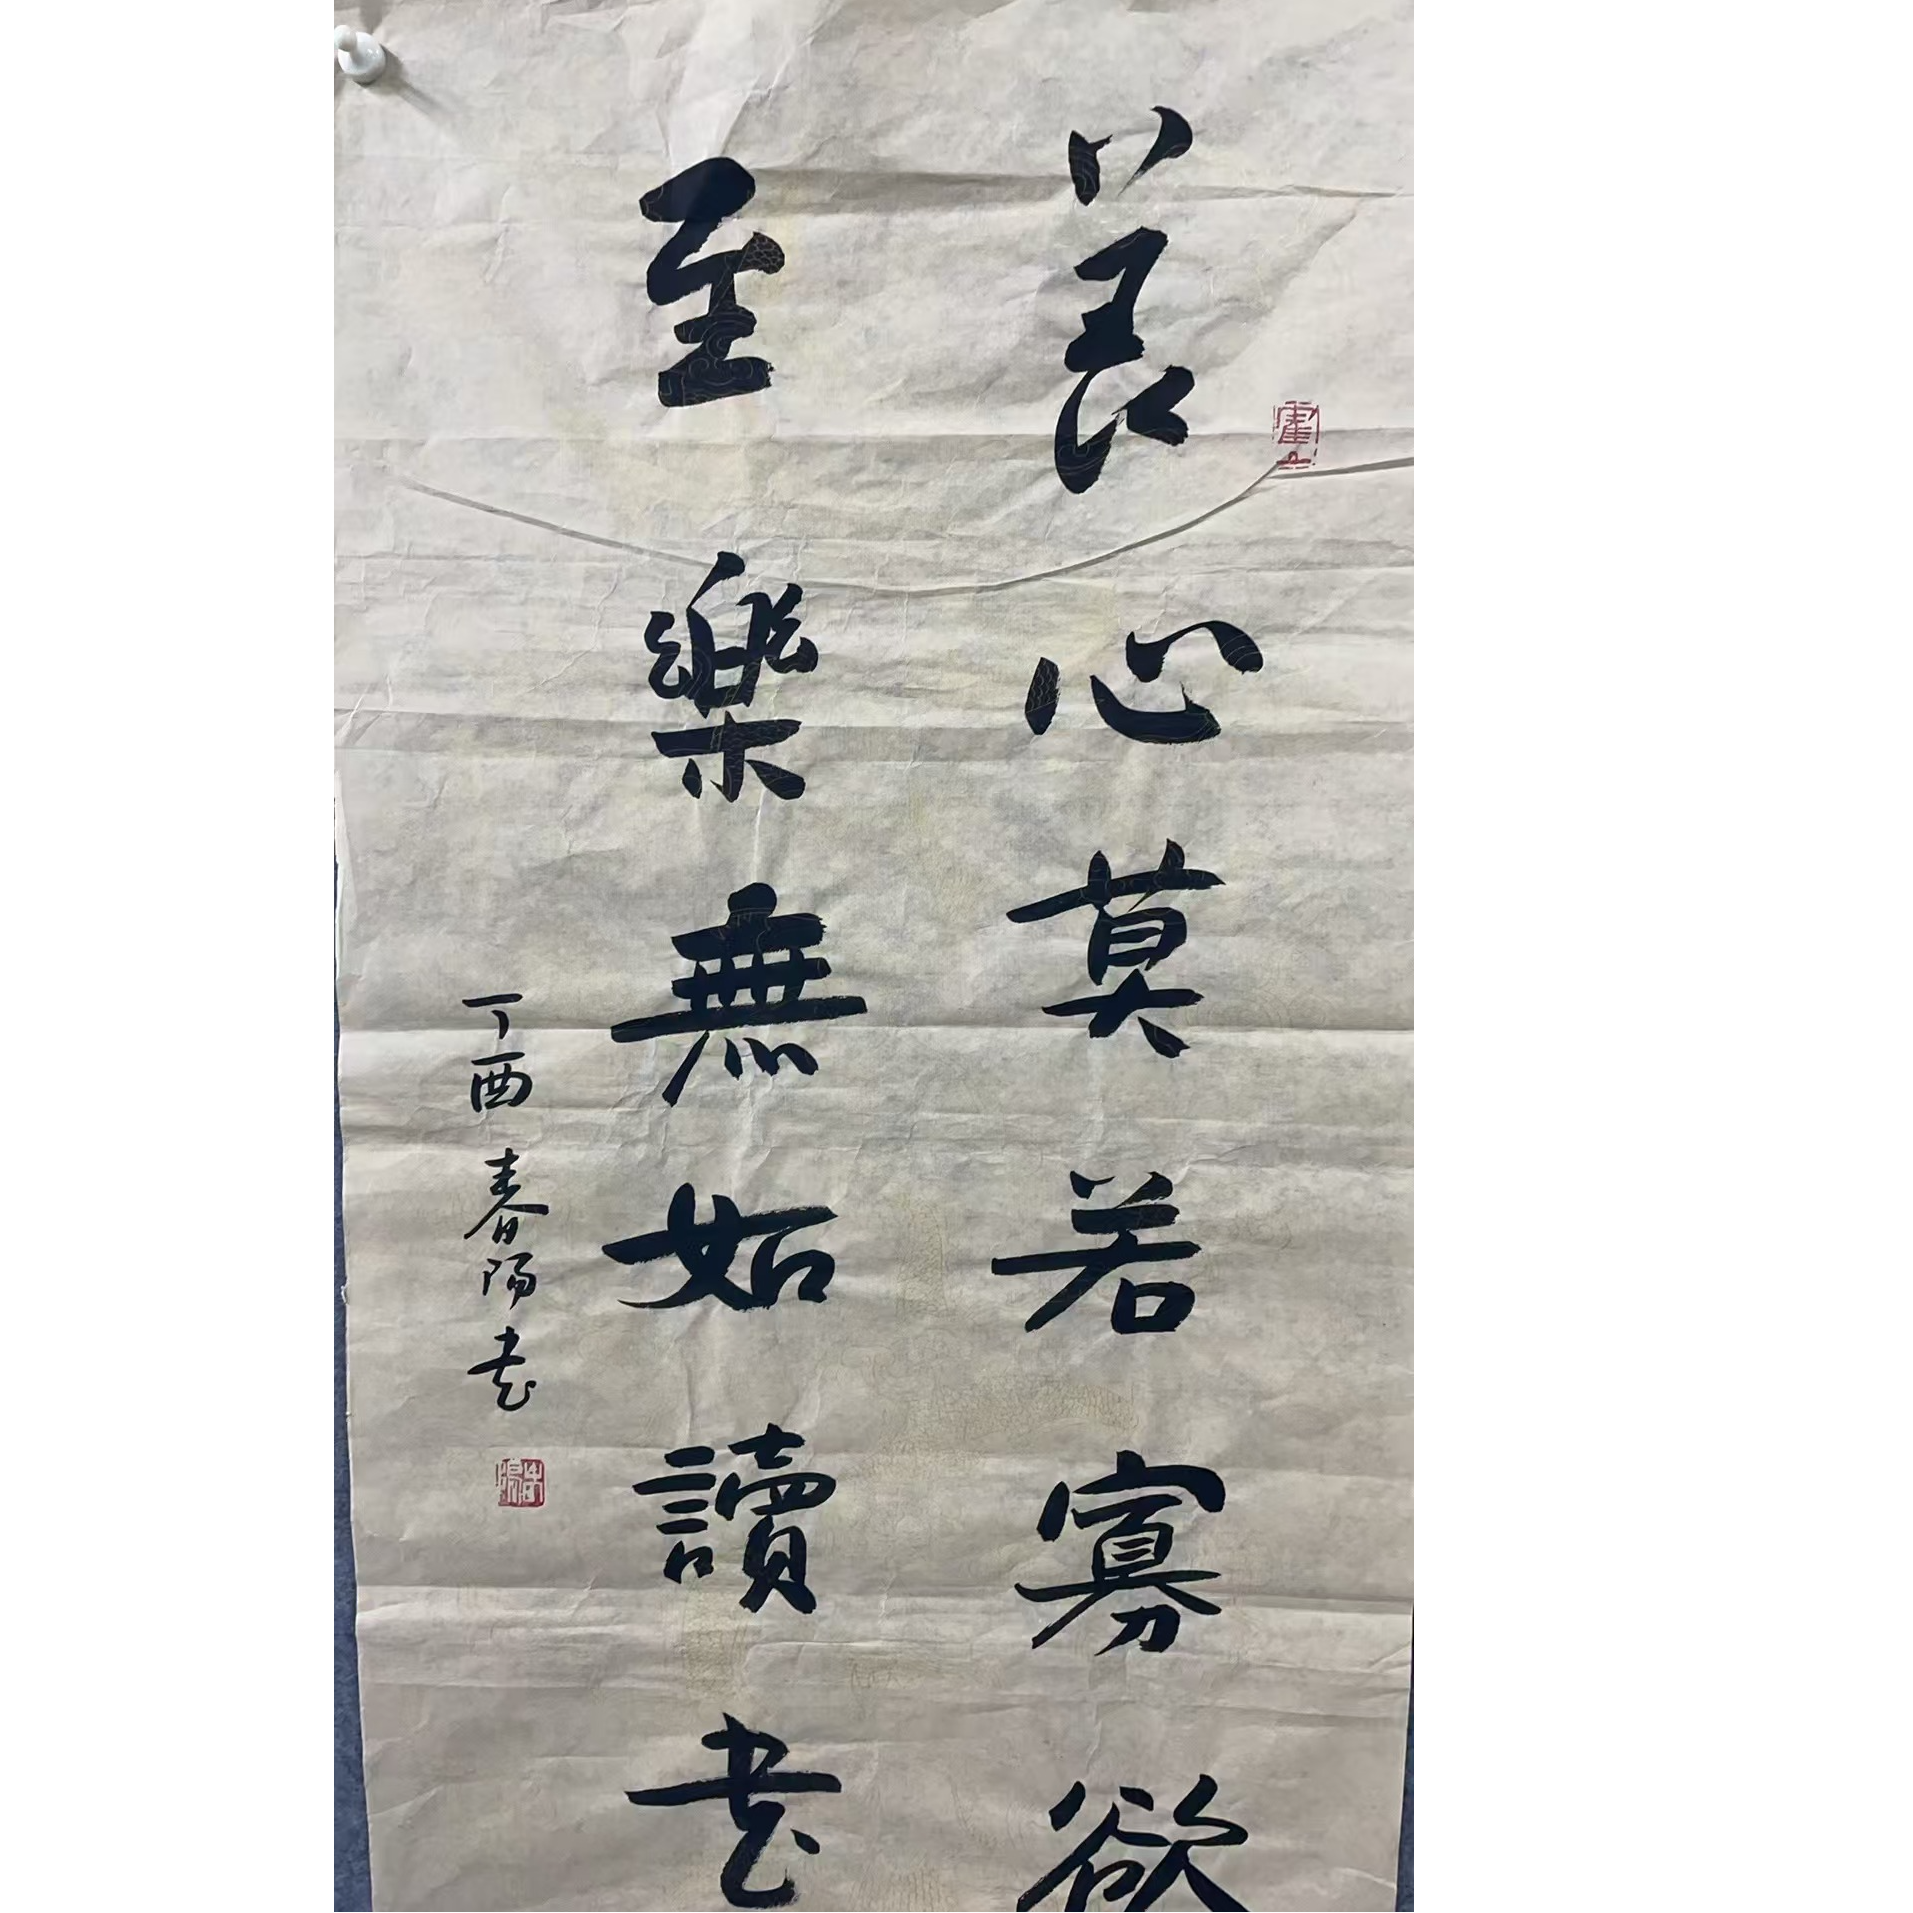 養心莫若寡欲
至樂無如讀書
丁酉春陽书